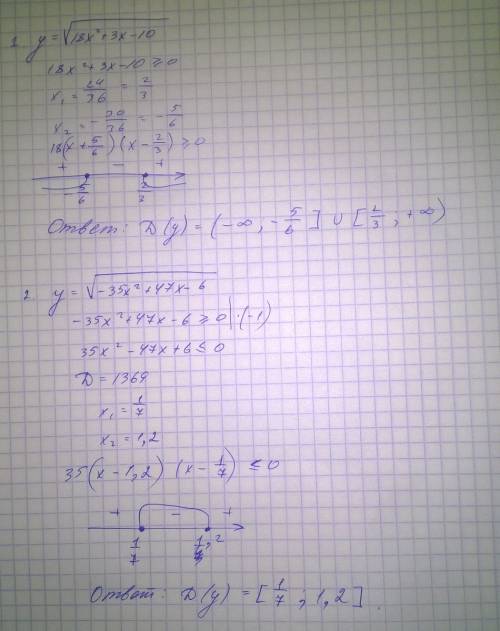 1. y = √(18x²+3x-10)
18x²+3x-10 ≥ 0
x₁ = 24/36 = 2/3
x₂ = -30/36 = -5/6
18(x+5/6)(x-2/3) ≥ 0
+ - +
-5/6 2/3
Ответ: D(y) = (-∞, -5/6] ∪ [2/3; +∞)
2 y = √(-35x²+47x-6)
-35x²+47x-6 ≥ 0 | ·(-1)
35x²-47x+6 ≤ 0
D = 1369
x₁ = 1/7
x₂ = 1,2
35(x-1,2)(x-1/7) ≤ 0
+ - +
1/7 1,2
Ответ: D(y) = [1/7; 1,2].